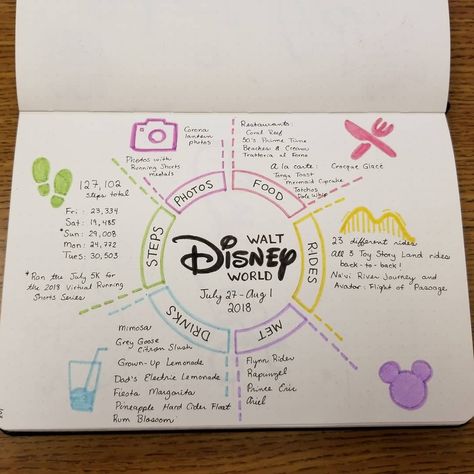 WALT
DISNEY
WORLD
July 27 - Aug 1
2018
PHOTOS
Corona
lantern
photos
Photos with
Running Shorts
medals
FOOD
Restaurants:
Coral Reef
50's Prime Time
Beaches & Cream
Trattoria al Forno
A la carte: Croque Glacé
Tonga Toast
mermaid Cupcake
Totchos
Dole Whip
RIDES
23 different rides
All 3 Toy Story Land rides
back-to-back!
Na'vi River Journey and
Avatar: Flight of Passage
MET
Flynn Rider
Rapunzel
Prince Eric
Ariel
DRINKS
mimosa
Grey Goose
Citron Slush
Grown-Up Lemonade
Dad's Electric Lemonade
Fiesta Margarita
Pineapple Hard Cider Float
Rum Blossom
STEPS
127,102
steps total
Fri: 23,334
Sat: 19,485
*Sun: 29,008
Mon: 24,772
Tues: 30,503
*Ran the July 5K for
the 2018 Virtual Running
Shorts Series